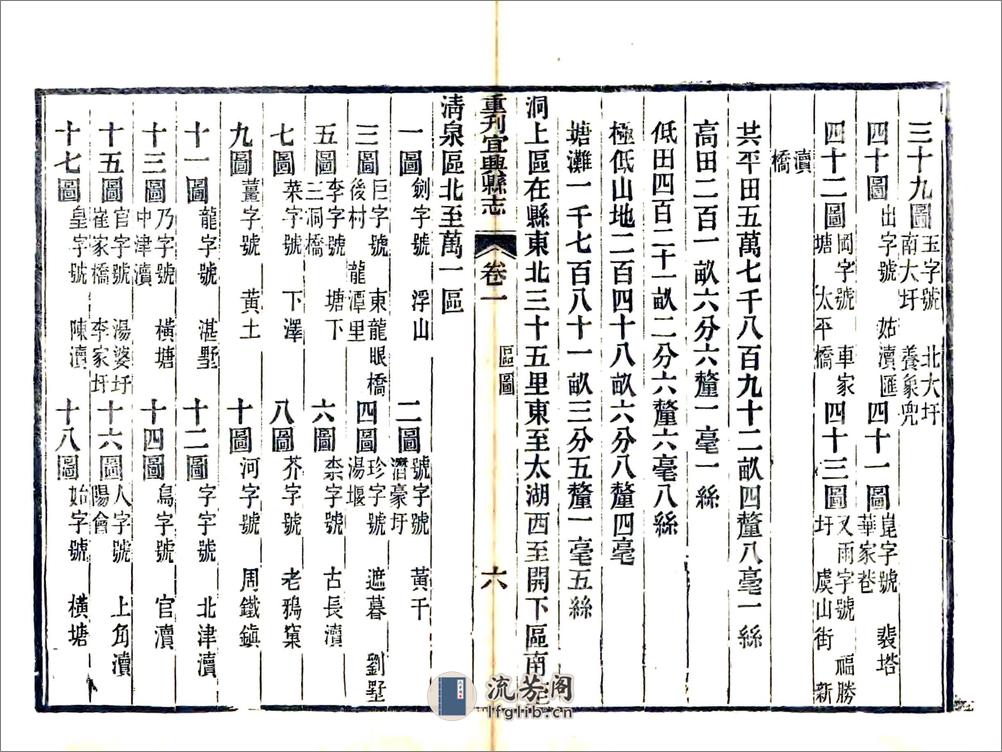 三十九圖 玉字號 北大圩 南大圩 養象兜
四十圖 出字號 姑瀆匯 四十一圖 崑字號 裴塔 華家巷
四十二圖 岡字號 車家塘 太平橋 四十三圖 又雨字號 福勝圩 虞山街 新
瀆橋
共平田五萬七千八百九十二畝四釐八毫一絲
高田二百一畝六分六釐一毫一絲
低田四百二十一畝二分六釐六毫八絲
極低山地二百四十八畝六分八釐四毫
塘灘一千七百八十一畝三分五釐一毫五絲
洞上區在縣東北三十五里東至太湖西至開下區南至
重刊宜興縣志 卷一 區圖 六
清泉區北至萬一區
一圖 劍字號 浮山 二圖 號字號 黃干 濳豪圩
三圖 巨字號 東龍眼橋 後村 龍潭里 四圖 珍字號 遮暮 湯堰 劉墅
五圖 李字號 塘下 三洞橋 六圖 柰字號 古長瀆
七圖 菜字號 下澤 八圖 芥字號 老鴉窠
九圖 薑字號 黃土 十圖 河字號 周鐵鎮
十一圖 龍字號 湛墅 十二圖 字字號 北津瀆
十三圖 乃字號 橫塘 中津瀆 十四圖 鳥字號 官瀆
十五圖 官字號 湯婆圩 崔家橋 李家圩 十六圖 人字號 上角瀆 陽會
十七圖 皇字號 陳瀆 十八圖 始字號 橫塘
流芳阁
lfglib.cn